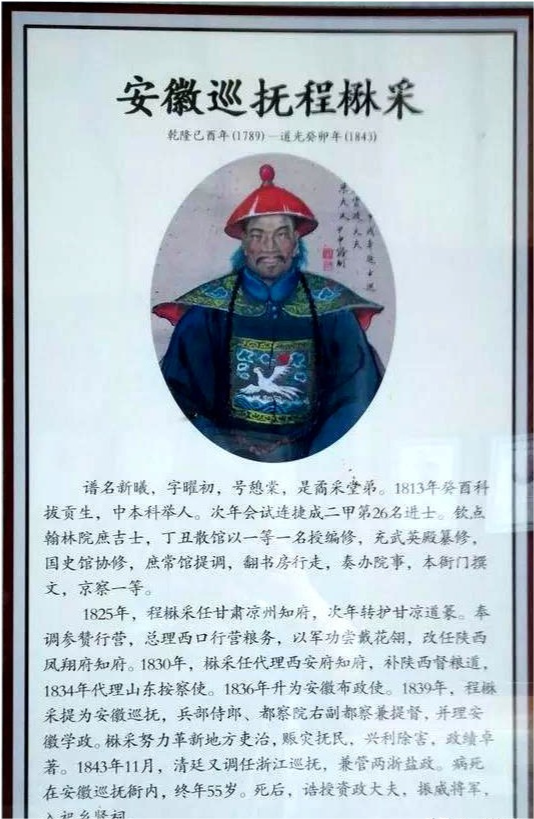 安徽巡抚程楙采
乾隆己酉年(1789)—道光癸卯年(1843)
谱名新曦，字曜初，号憩棠，是矞采堂弟。1813年癸酉科
拔贡生，中本科举人。次年会试连捷成二甲第26名进士。钦点
翰林院庶吉士，丁丑散馆以一等一名授编修，充武英殿纂修，
国史馆协修，庶常馆提调，翻书房行走，奏办院事，本衙门撰
文，京察一等。
1825年，程楙采任甘肃凉州知府，次年转护甘凉道篆。奉
调参赞行营，总理西口行营粮务，以军功尝戴花翎，改任陕西
凤翔府知府。1830年，楙采任代理西安府知府，补陕西督粮道，
1834年代理山东按察使。1836年升为安徽布政使。1839年，程楙
采提为安徽巡抚，兵部侍郎、都察院右副都察兼提督，并理安
徽学政。楙采努力革新地方吏治，赈灾抚民，兴利除害，政绩卓
著。1843年11月，清廷又调任浙江巡抚，兼管两浙盐政。病死
在安徽巡抚衙内，终年55岁。死后，诰授资政大夫，振威将军，
入祀乡贤祠